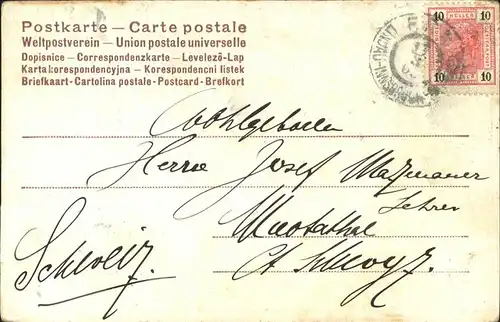 Postkarte — Carte postale
Weltpostverein — Union postale universelle
Dopisnice — Correspondenzkarte — Levelező-Lap
Karta korespondencyjna — Korespondencni listek
Briefkaart - Cartolina postale - Postcard - Brefkort
10 HELLER 10
10 10
Wohlgeboren
Herrn Josef
Lehrer
Muotathal
Ct. Schwyz.
Schweiz.